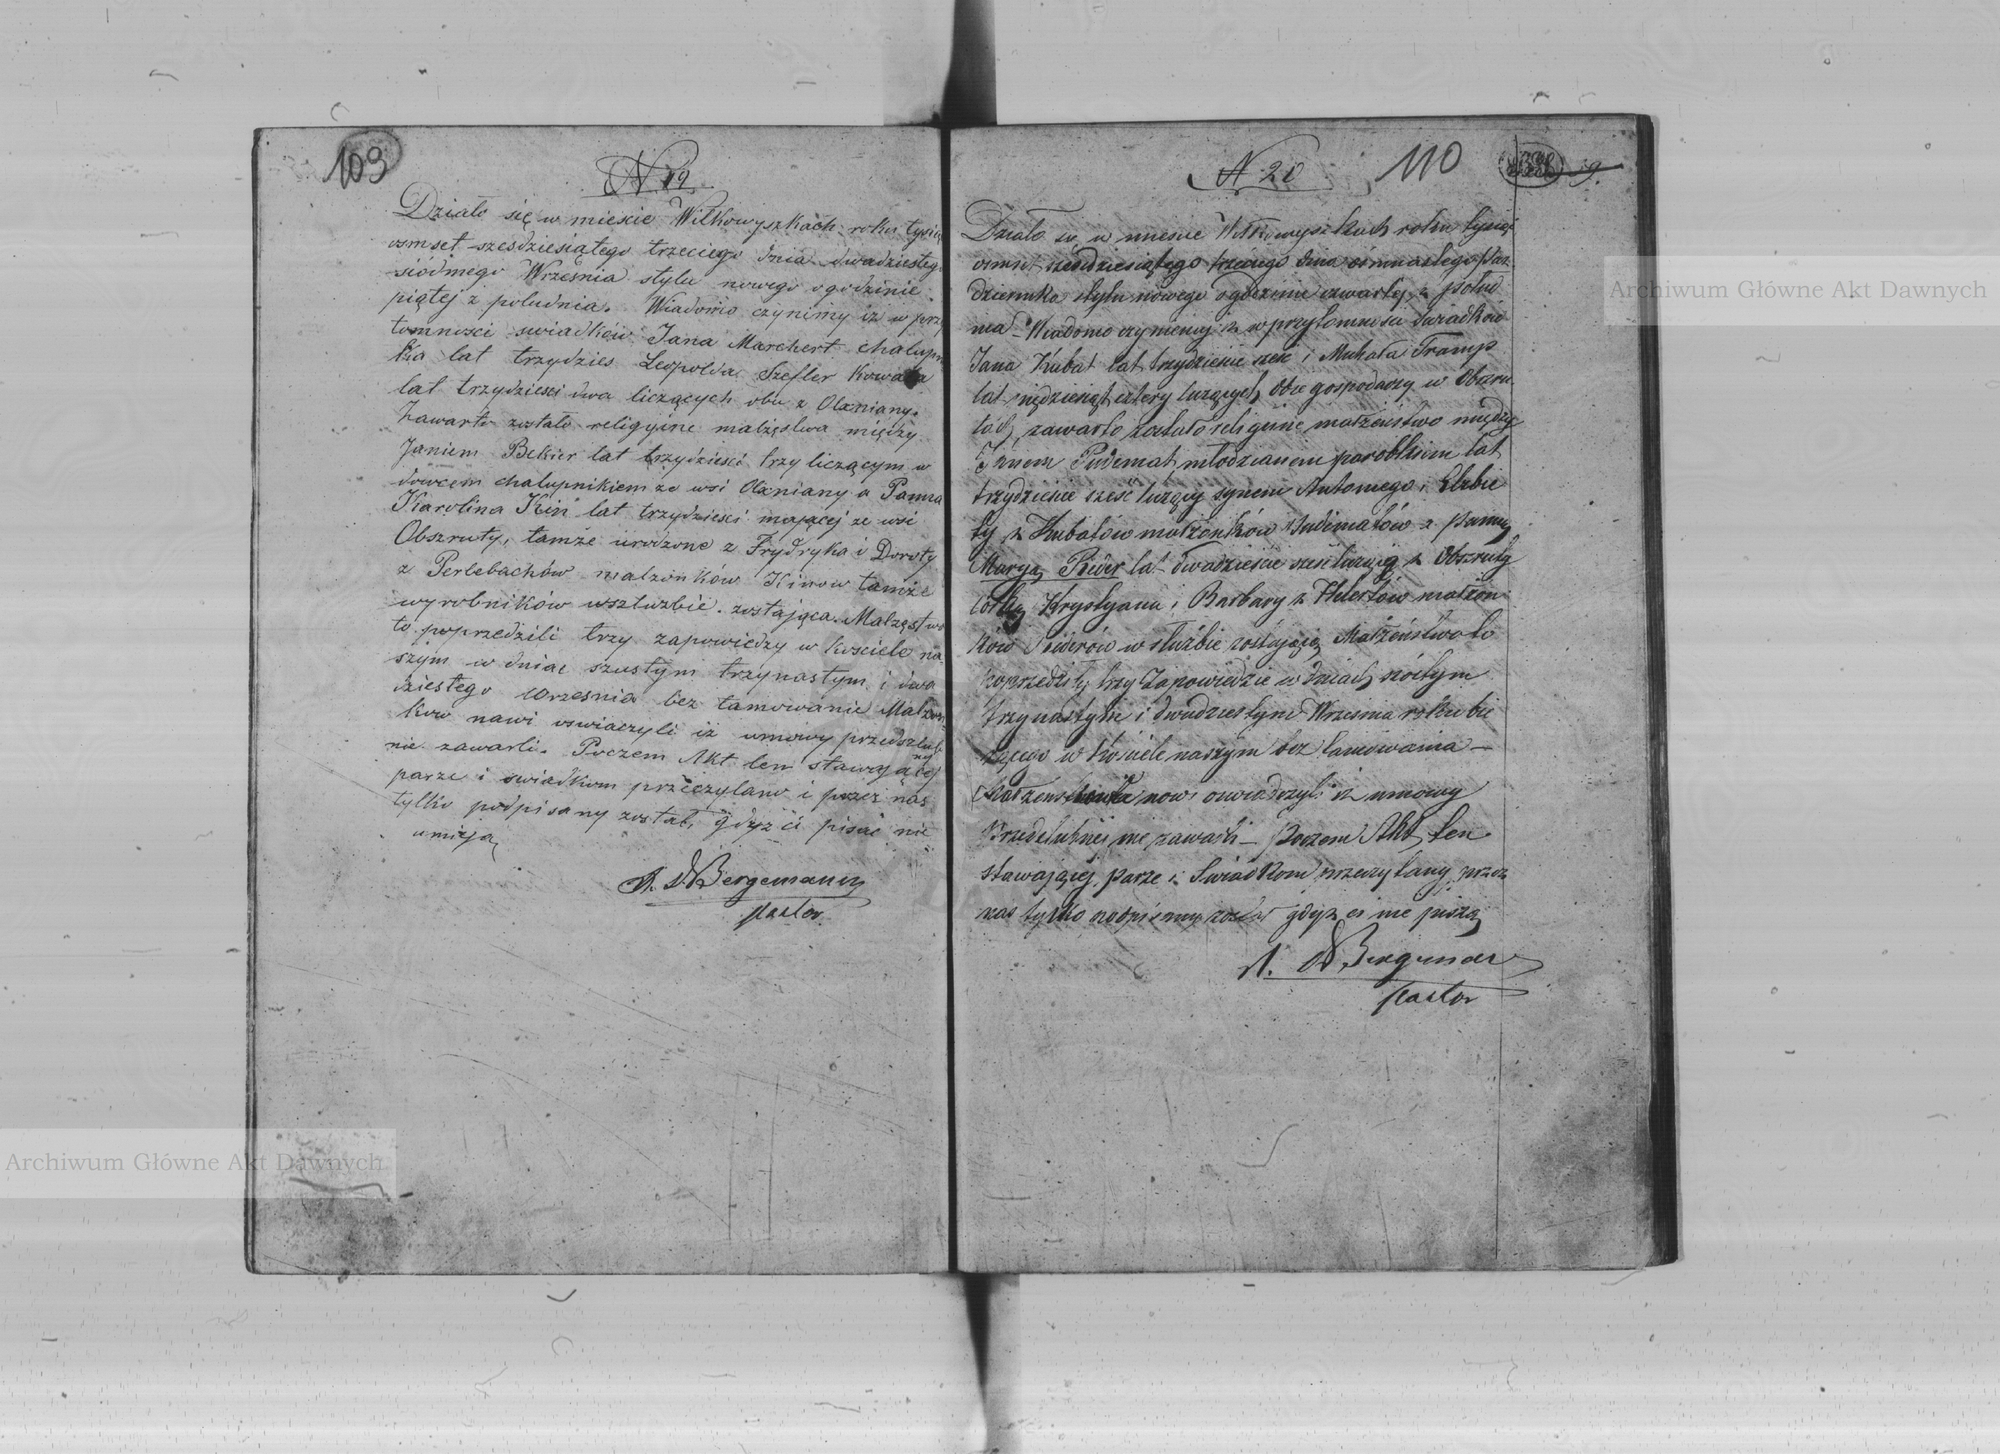 103
N 19
Działo się w mieście Wiłkowyszkach roku tysiąc
osmset szesdziesiątego trzeciego dnia dwadziesteg
siódmego Wrzesnia stylu nowego o godzinie
piątej z południa. Wiadomo czynimy iz w przy
tomności swiadków Jana Marchert chałupn
ka lat trzydzies Leopolda Szefler Kowala
lat trzydzieści dwa liczących obu z Olxniany.
Zawarte zostało religijne małżęstwa między
Janiem Bekier lat trzydziesci trzy liczącym w
dowcem chałupnikiem ze wsi Olxniany a Panna
Karolina Kin lat trzydziesci mającej ze wsi
Obszruty, tamże urodzone z Frydryka i Doroty
z Perlebachów małzonków Kinow tamże
wyrobników wsztuzbie zostająca. Małzęstwo
to poprzedzili trzy zapowiedzy w kosciele na
szym w dniac szustym trzynastym i dwa
dziestego Wrzesnia bez tamowanie Małzon
kow nawi oswiaczyli iż umowy przedszlub
nej
nie zawarli. Poczem Akt ten stawającej
parze i swiadkom przeczytano i przez nas
tylko podpisany został, gdyż ci pisać nie
umieją
A. W Bergemann
Pastor
N 20
110
9.
Działo się w miescie Wiłkowyszkach roku tysiąc
osmset sześdziesiątego trzeciego dnia ośmnastego Paz
dziernika stylu nowego o godzinie czwartej z połud
nia Wiadomo czyniemy iz w przytomnosci Swiadków
Jana Kubat lat trzydziesie szesc i Michała Tramp
lat piędziesiąt cztery liczących obu gospodarzy w Obszru
tach, zawarto zostało religijne małżeństwo między
Janem Pudemat młodzianem parobkiem lat
trzydziesie szesć liczący synem Antoniego i Elzbie
ty z Kubatow małżonków Pudimatów z panną
Maryą Reider lat dwadzieście szesc liczącą z Obszruty
córką Krystyana i Barbary z Helertów małżon
ków Reiderów w służbie zostającą Małżeństwo to
poprzedziły trzy Zapowiedzie w dniach szóstym
trzynastym i dwudziestym Wrzesnia roku bie
zącego w Kosciele naszym bez tamowania —
Małżenstwonka nowi oswiadczyli iz umowy
Przedslubnej nie zawarli — Poczem Akt ten
stawającej parze i Swiadkom przeczytany przez
nas tylko podpisany został gdyz ci nie piszą
A. W Bergeman
Pastor
Archiwum Główne Akt Dawnych
Archiwum Główne Akt Dawnych